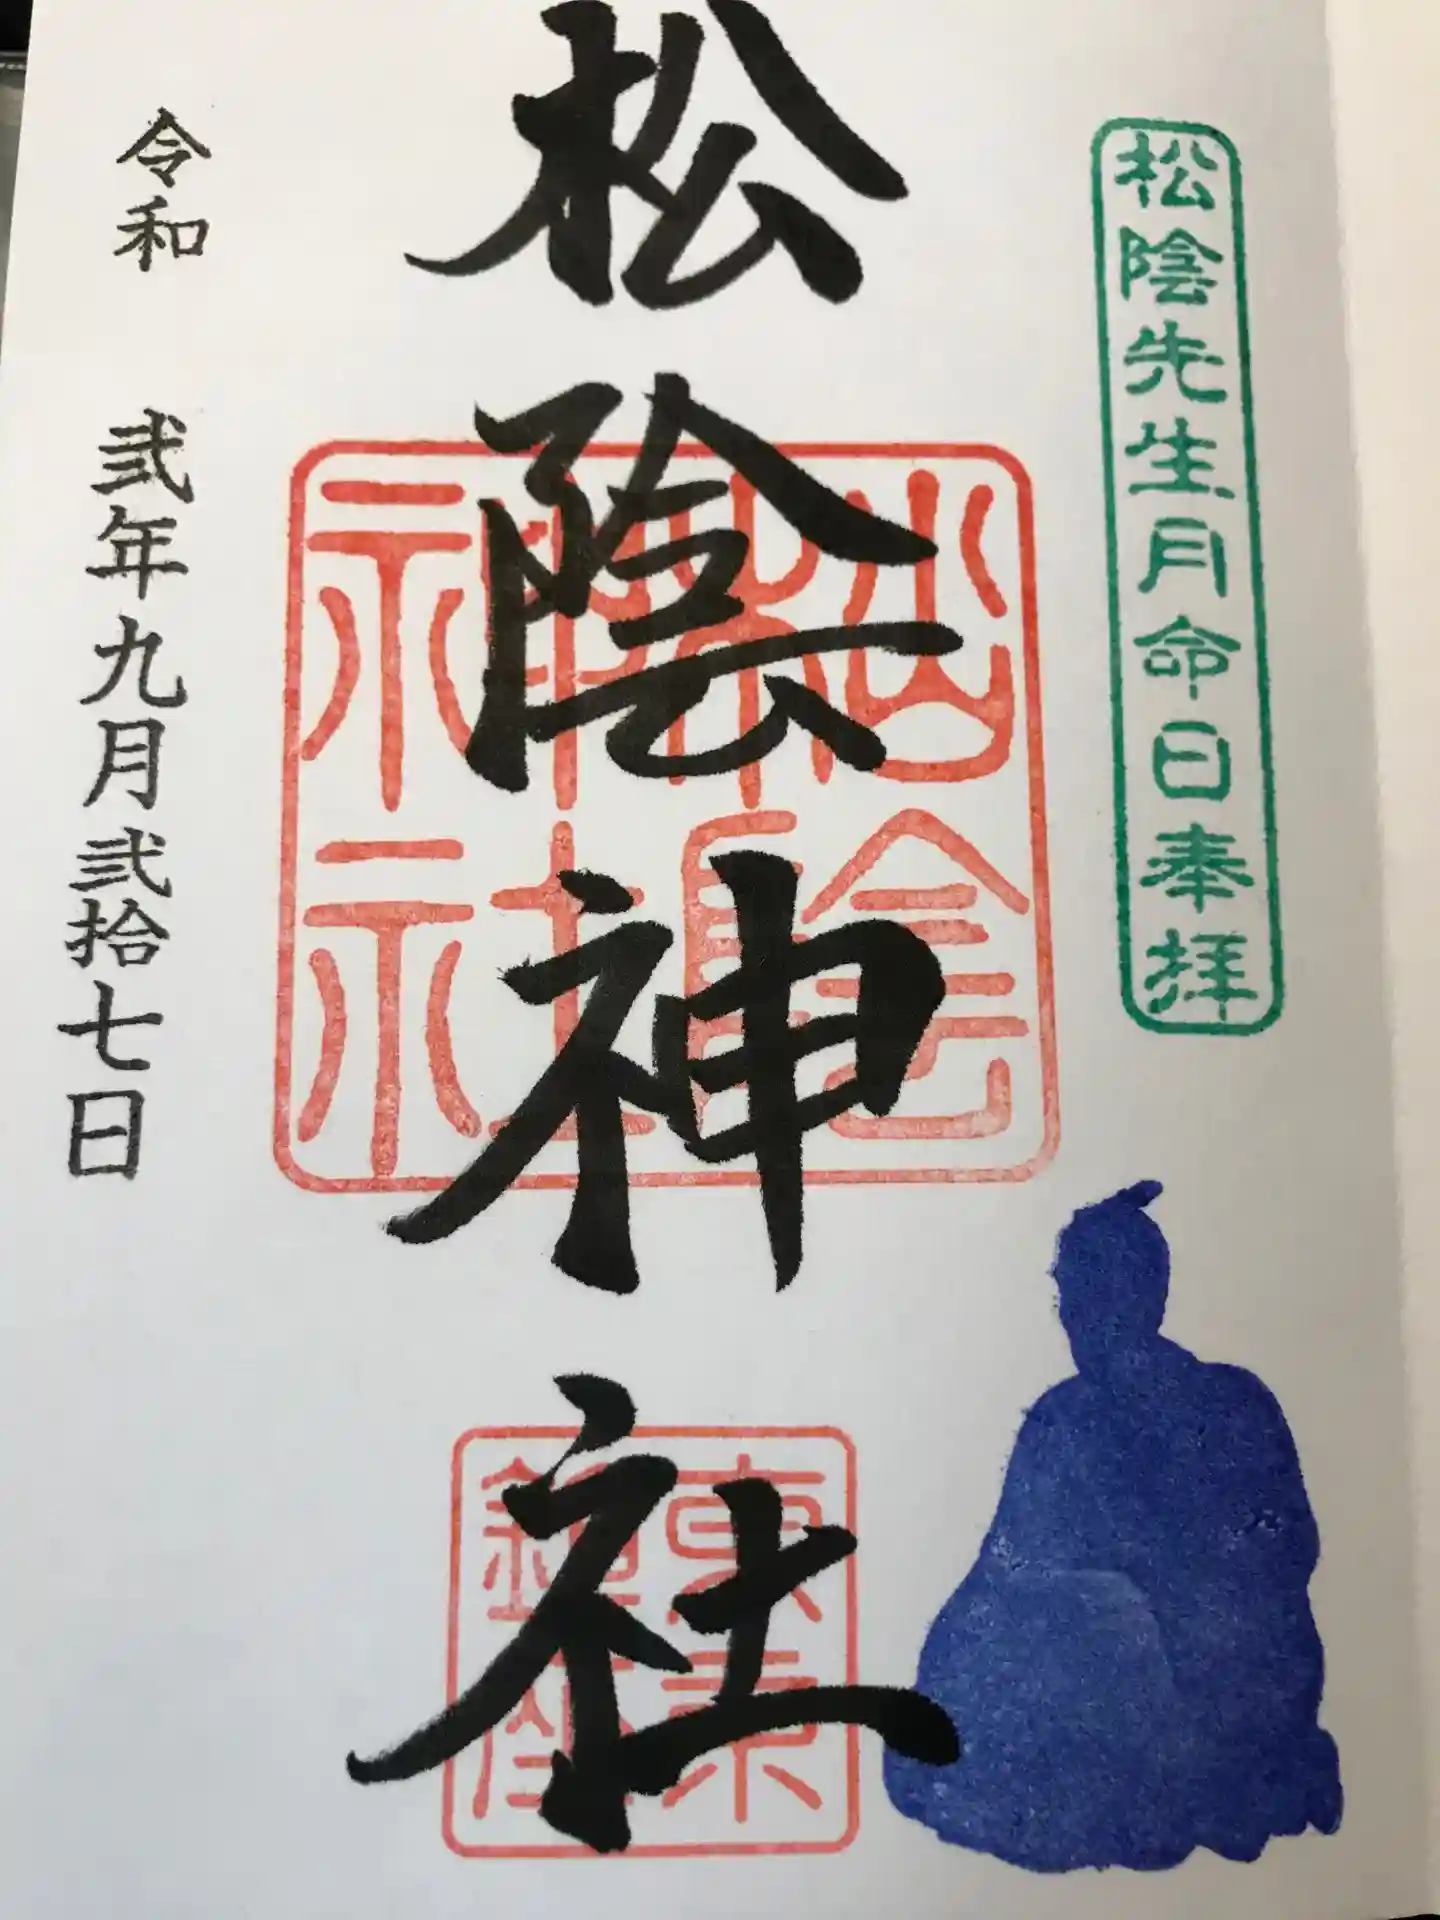 松陰先生月命日奉拝
松陰神社
松陰神社
東京
鎮座
令和 弐年九月弐拾七日